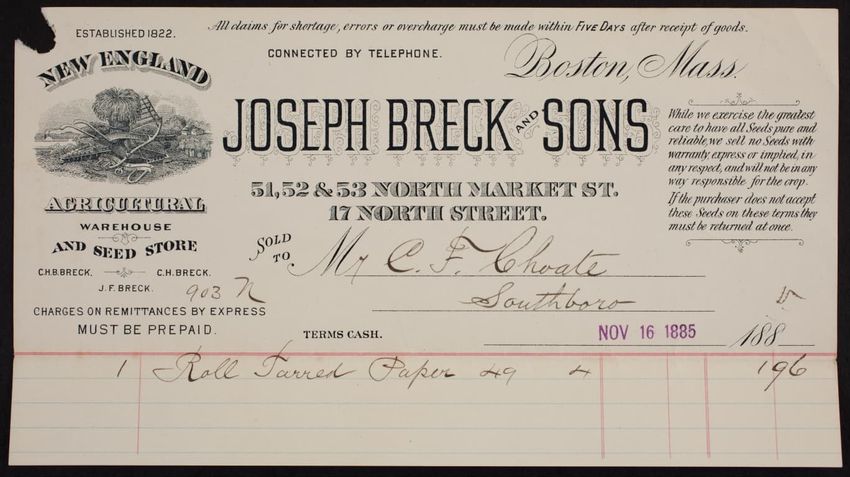 ESTABLISHED 1822.
All claims for shortage, errors or overcharge must be made within FIVE DAYS after receipt of goods.
CONNECTED BY TELEPHONE.
Boston, Mass.
NEW ENGLAND
AGRICULTURAL
WAREHOUSE
AND SEED STORE
C.H.B. BRECK. C.H. BRECK.
J.F. BRECK.
903 N
CHARGES ON REMITTANCES BY EXPRESS
MUST BE PREPAID.
JOSEPH BRECK AND SONS
51, 52 & 53 NORTH MARKET ST.
17 NORTH STREET.
While we exercise the greatest
care to have all Seeds pure and
reliable, we sell no Seeds with
warranty, express or implied, in
any respect, and will not be in any
way responsible for the crop.
If the purchaser does not accept
these Seeds on these terms they
must be returned at once.
SOLD TO Mr C. F. Choate
Southboro
TERMS CASH. NOV 16 1885 188 5
1 Roll Tarred Paper 49 4 1 96